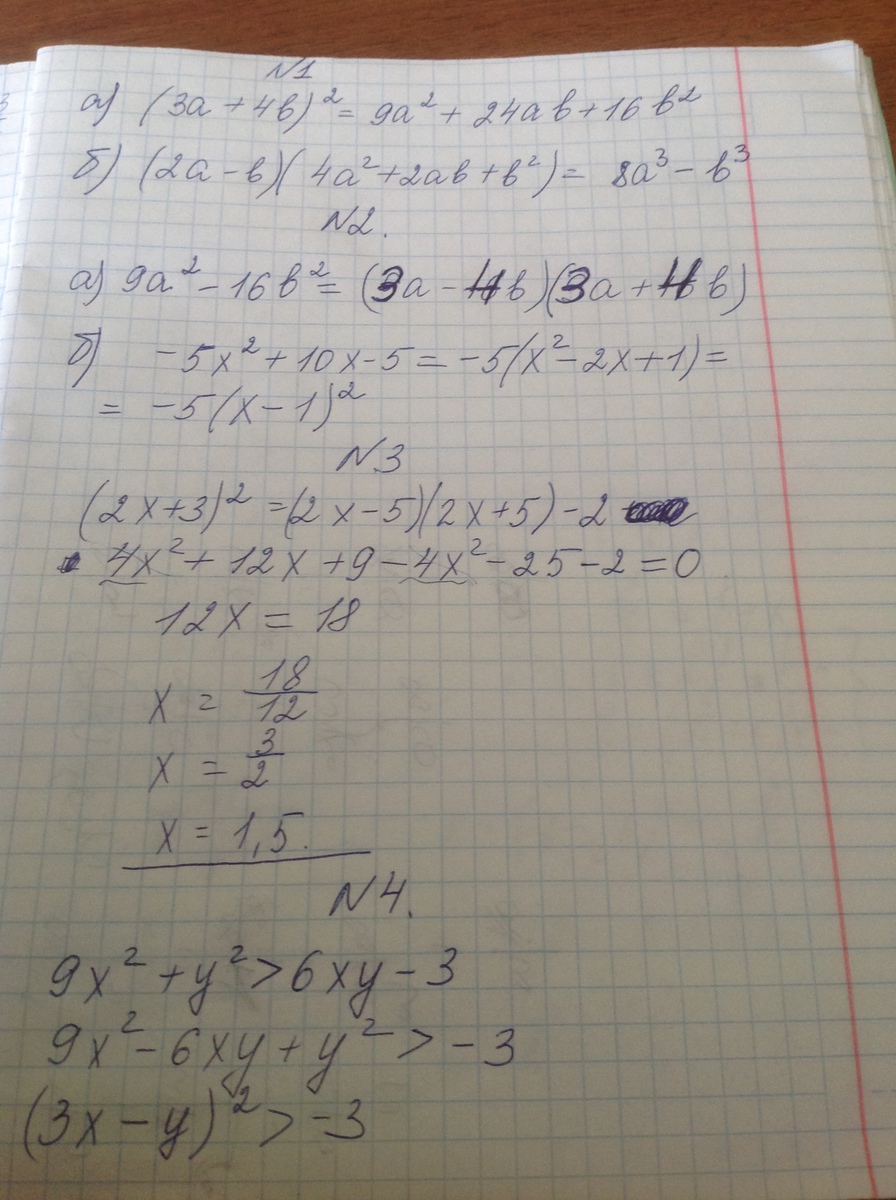 N1
а) (3a + 4b)² = 9a² + 24ab + 16b²
б) (2a - b)(4a² + 2ab + b²) = 8a³ - b³
N2.
а) 9a² - 16b² = (3a - 4b)(3a + 4b)
б) -5x² + 10x - 5 = -5(x² - 2x + 1) =
= -5(x - 1)²
N3
(2x + 3)² = (2x - 5)(2x + 5) - 2
4x² + 12x + 9 - 4x² - 25 - 2 = 0
12x = 18
x = 18/12
x = 3/2
x = 1,5.
N4.
9x² + y² > 6xy - 3
9x² - 6xy + y² > -3
(3x - y)² > -3